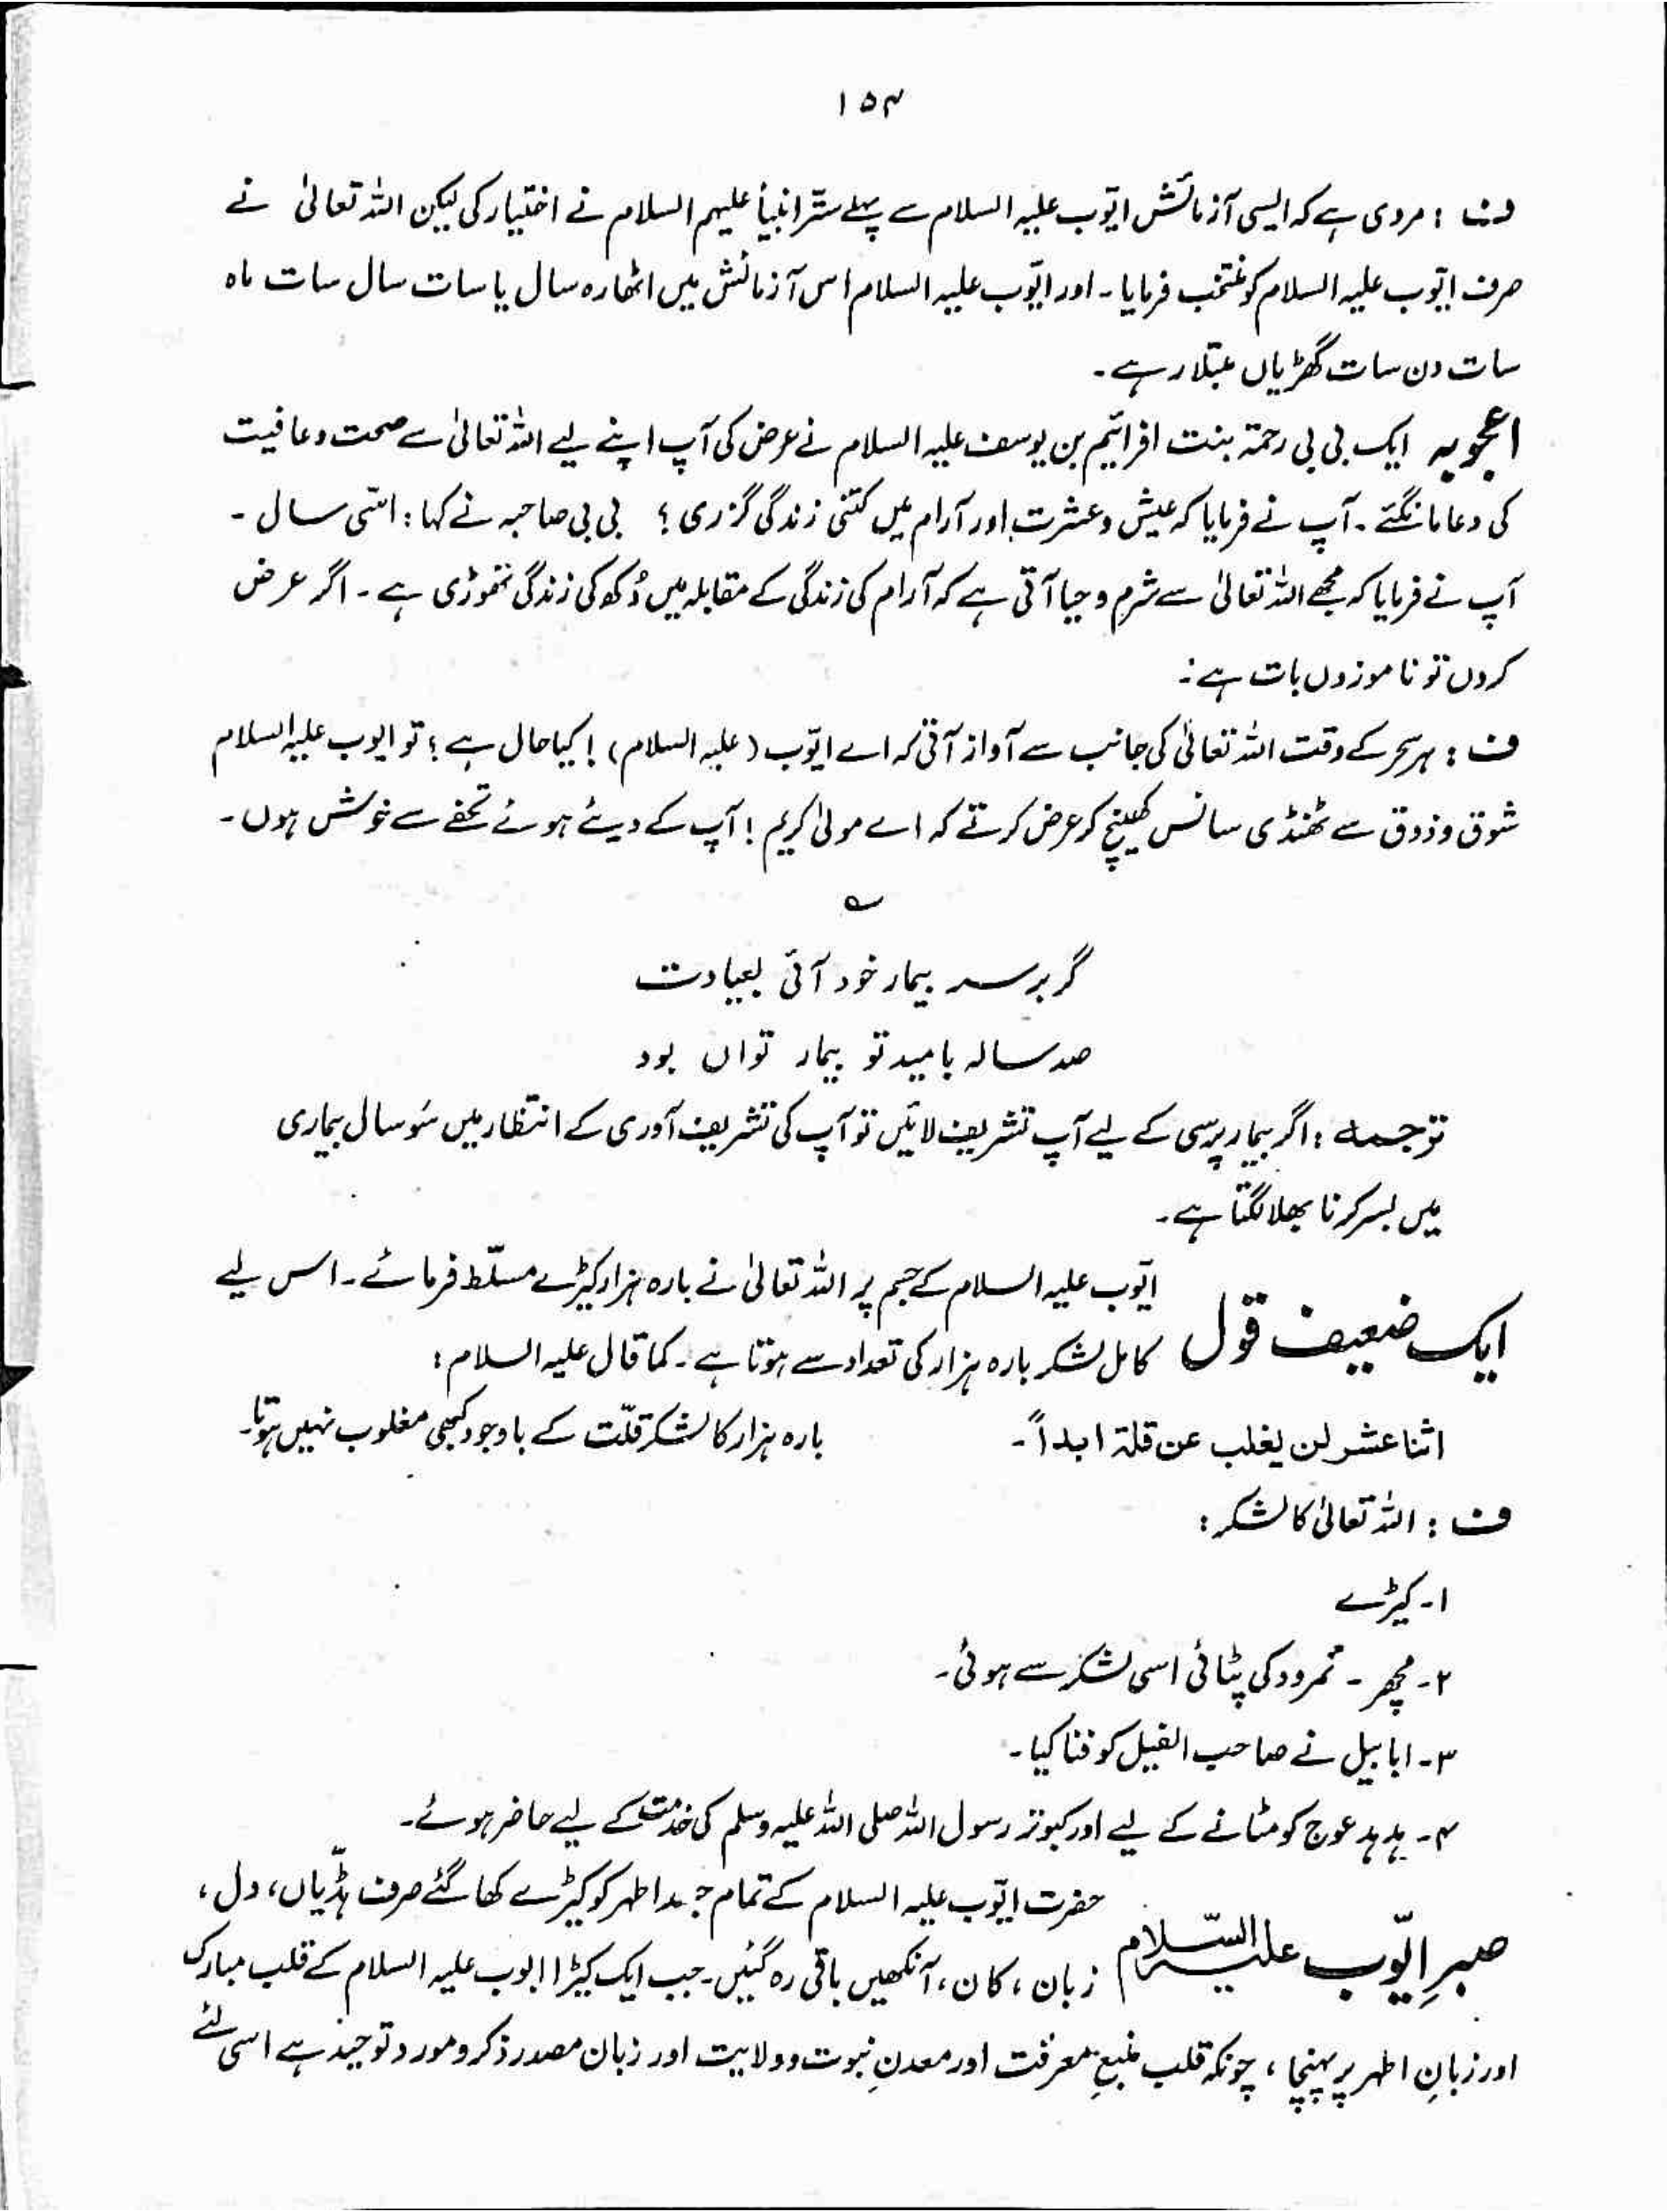 ۱۵۴
ف : مروی ہے کہ ایسی آزمائش ایّوب علیہ السلام سے پہلے ستّر انبیأ علیہم السلام نے اختیار کی لیکن اللہ تعالیٰ نے
صرف ایّوب علیہ السلام کو منتخب فرمایا۔ اور ایّوب علیہ السلام اس آزمائش میں اٹھارہ سال یا سات سال سات ماہ
سات دن سات گھڑیاں مبتلا رہے۔
اعجوبہ ایک بی بی رحمۃ بنت افرائیم بن یوسف علیہ السلام نے عرض کی آپ اپنے لیے اللہ تعالیٰ سے صحت و عافیت
کی دعا مانگئے۔ آپ نے فرمایا کہ عیش و عشرت اور آرام میں کتنی زندگی گزری ؟ بی بی صاحبہ نے کہا : اسّی سال ۔
آپ نے فرمایا کہ مجھے اللہ تعالیٰ سے شرم و حیا آتی ہے کہ آرام کی زندگی کے مقابلہ میں دُکھ کی زندگی تھوڑی ہے ۔ اگر عرض
کروں تو ناموزوں بات ہے :
ف : ہر سحر کے وقت اللہ تعالیٰ کی جانب سے آواز آتی کہ اے ایّوب (علیہ السلام) ! کیا حال ہے ؟ تو ایوب علیہ السلام
شوق و ذوق سے ٹھنڈی سانس کھینچ کر عرض کرتے کہ اے مولیٰ کریم ! آپ کے دیئے ہوئے تحفے سے خوش ہوں ۔
؎
گر برسر بیمار خود آئی بعیادت
صد سالہ بامید تو بیمار تواں بود
ترجمہ : اگر بیمار پرسی کے لیے آپ تشریف لائیں تو آپ کی تشریف آوری کے انتظار میں سَو سال بیماری
میں بسر کرنا بھلا لگتا ہے ۔
ایک ضعیف قول ایّوب علیہ السلام کے جسم پر اللہ تعالیٰ نے بارہ ہزار کیڑے مسلّط فرمائے ۔ اس لیے
کامل لشکر بارہ ہزار کی تعداد سے ہوتا ہے ۔ کما قال علیہ السلام :
اثنا عشر لن یغلب عن قلۃ ابداً ۔ بارہ ہزار کا لشکر قلّت کے باوجود کبھی مغلوب نہیں ہوتا۔
ف : اللہ تعالیٰ کا لشکر :
۱- کیڑے
۲- مچھر - نمرود کی پٹائی اسی لشکر سے ہوئی ۔
۳- ابابیل نے صاحب الفیل کو فنا کیا ۔
۴- ہدہد عوج کو مٹانے کے لیے اور کبوتر رسول اللہ صلی اللہ علیہ وسلم کی خدمت کے لیے حاضر ہوئے ۔
صبرِ ایّوب علیہ السّلام حضرت ایّوب علیہ السلام کے تمام جسد اطہر کو کیڑے کھا گئے صرف ہڈّیاں ، دل ،
زبان ، کان ، آنکھیں باقی رہ گئیں ۔ جب ایک کیڑا ایوب علیہ السلام کے قلب مبارک
اور زبانِ اطہر پر پہنچا ، چونکہ قلب منبعِ معرفت اور معدنِ نبوت و ولایت اور زبان مصدر ذکر و مورد توحید ہے اسی لئے